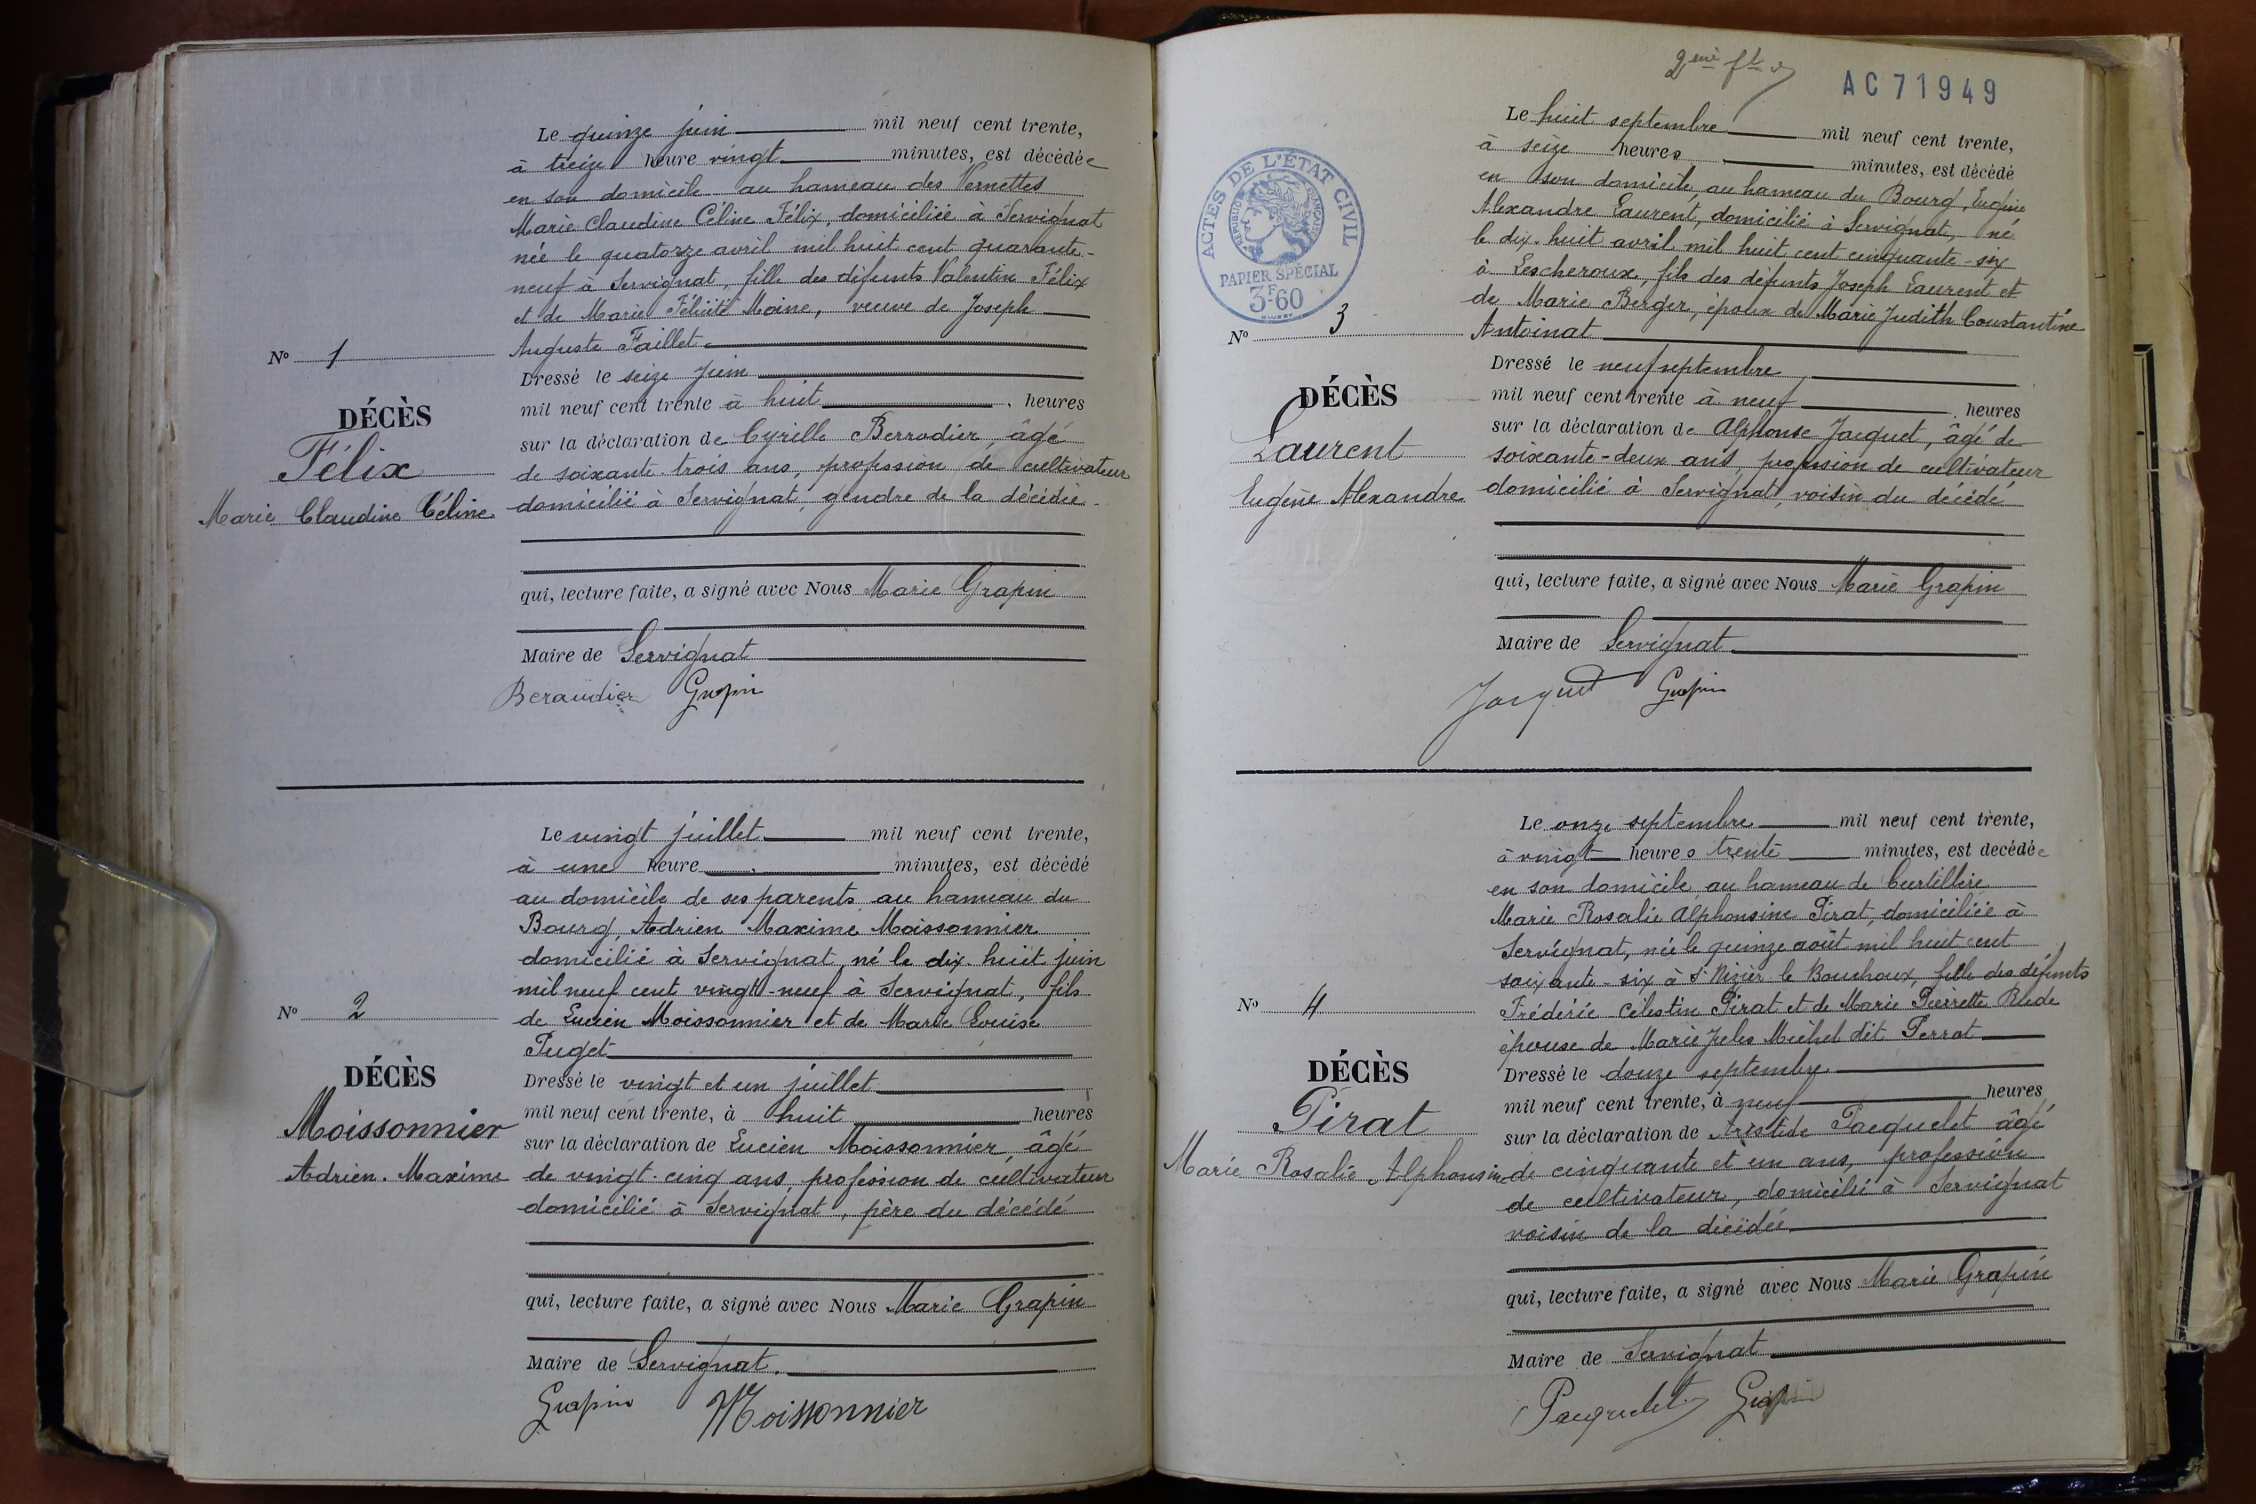 Le quinze juin mil neuf cent trente,
à treize heure vingt minutes, est décédée
en son domicile au hameau des Vernettes
Marie Claudine Céline Félix, domiciliée à Servignat
née le quatorze avril mil huit cent quarante-
neuf à Servignat, fille des défunts Valentin Félix
et de Marie Félicité Moine, veuve de Joseph
Auguste Faillet.
Nº 1
DÉCÈS
Félix
Marie Claudine Céline
Dressé le seize juin
mil neuf cent trente à huit heures
sur la déclaration de Cyrille Berrodier, âgé
de soixante-trois ans, profession de cultivateur
domicilié à Servignat, gendre de la décédée
qui, lecture faite, a signé avec Nous Marie Grapin
Maire de Servignat
Beraudier Grapin
Le vingt juillet mil neuf cent trente,
à une heure minutes, est décédé
au domicile de ses parents au hameau du
Bourg, Adrien Maxime Moissonnier
domicilié à Servignat né le dix-huit juin
mil neuf cent vingt-neuf à Servignat, fils
de Lucien Moissonnier et de Marie Louise
Puget
Nº 2
DÉCÈS
Moissonnier
Adrien. Maxime
Dressé le vingt et un juillet
mil neuf cent trente, à huit heures
sur la déclaration de Lucien Moissonnier, âgé
de vingt-cinq ans, profession de cultivateur
domicilié à Servignat, père du décédé
qui, lecture faite, a signé avec Nous Marie Grapin
Maire de Servignat.
Grapin Moissonnier
AC 71949
ACTES DE L'ÉTAT CIVIL
RÉPUBLIQUE FRANÇAISE
PAPIER SPÉCIAL
3F.60
Le huit septembre mil neuf cent trente,
à seize heures, minutes, est décédé
en son domicile, au hameau du Bourg, Eugène
Alexandre Laurent, domicilié à Servignat, né
le dix-huit avril mil huit cent cinquante-six
à Lescheroux, fils des défunts Joseph Laurent et
de Marie Berger, époux de Marie Judith Constantine
Antoinat
Nº 3
DÉCÈS
Laurent
Eugène Alexandre
Dressé le neuf septembre
mil neuf cent trente à neuf heures
sur la déclaration de Alphonse Jacquet, âgé de
soixante-deux ans, profession de cultivateur
domicilié à Servignat, voisin du décédé
qui, lecture faite, a signé avec Nous Marie Grapin
Maire de Servignat
Jacquet Grapin
Le onze septembre mil neuf cent trente,
à vingt heures trente minutes, est decédée
en son domicile au hameau de Curtillère
Marie Rosalie Alphonsine Pirat, domiciliée à
Servignat, née le quinze août mil huit cent
soixante-six à St Nizier le Bouchoux, fille des défunts
Frédéric Célestin Pirat et de Marie Pierrette Rude
épouse de Marie Jules Michel dit Perrat
Nº 4
DÉCÈS
Pirat
Marie Rosalie Alphonsine
Dressé le douze septembre
mil neuf cent trente, à neuf heures
sur la déclaration de Aristide Pacquelet âgé
de cinquante et un ans, profession
de cultivateur, domicilié à Servignat
voisin de la décédée
qui, lecture faite, a signé avec Nous Marie Grapin
Maire de Servignat
Pacquelet Grapin